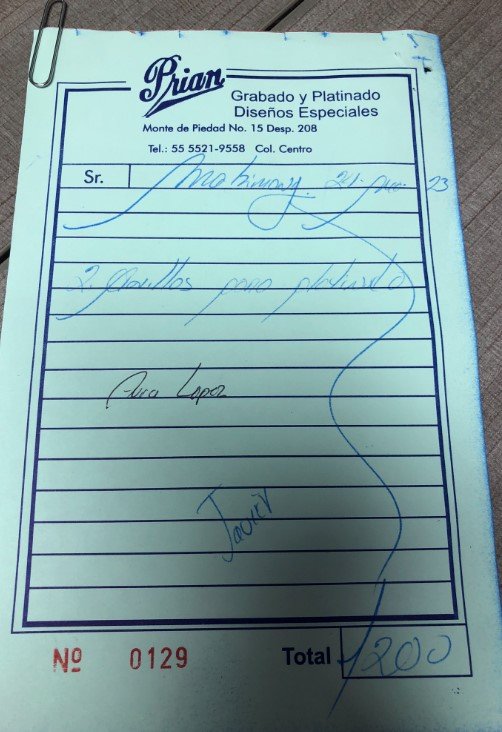 Prian
Grabado y Platinado
Diseños Especiales
Monte de Piedad No. 15 Desp. 208
Tel.: 55 5521-9558 Col. Centro
Sr. 23
2 para platinado
Ana Lopez
Javier
Nº 0129 Total 1200